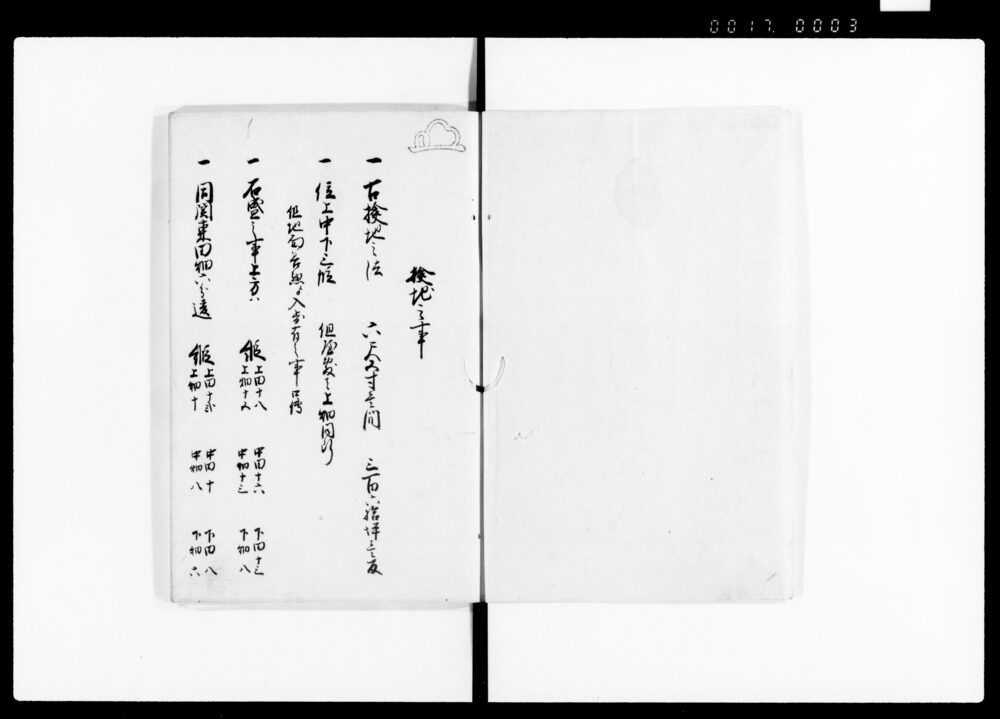 0017. 0003
検地之事
一 古検地之法 六尺五寸之間 三百六拾坪之反
一 位上中下三段 但屋敷ハ上畑同断
但地面善悪ニ入歩有之事口伝
一 石盛之事上方ハ 縦 上田十八 上畑十五 中田十六 中畑十三 下田十三 下畑八
一 同関東田畑六ツ違 縦 上田十弐 上畑十 中田十 中畑八 下田八 下畑六